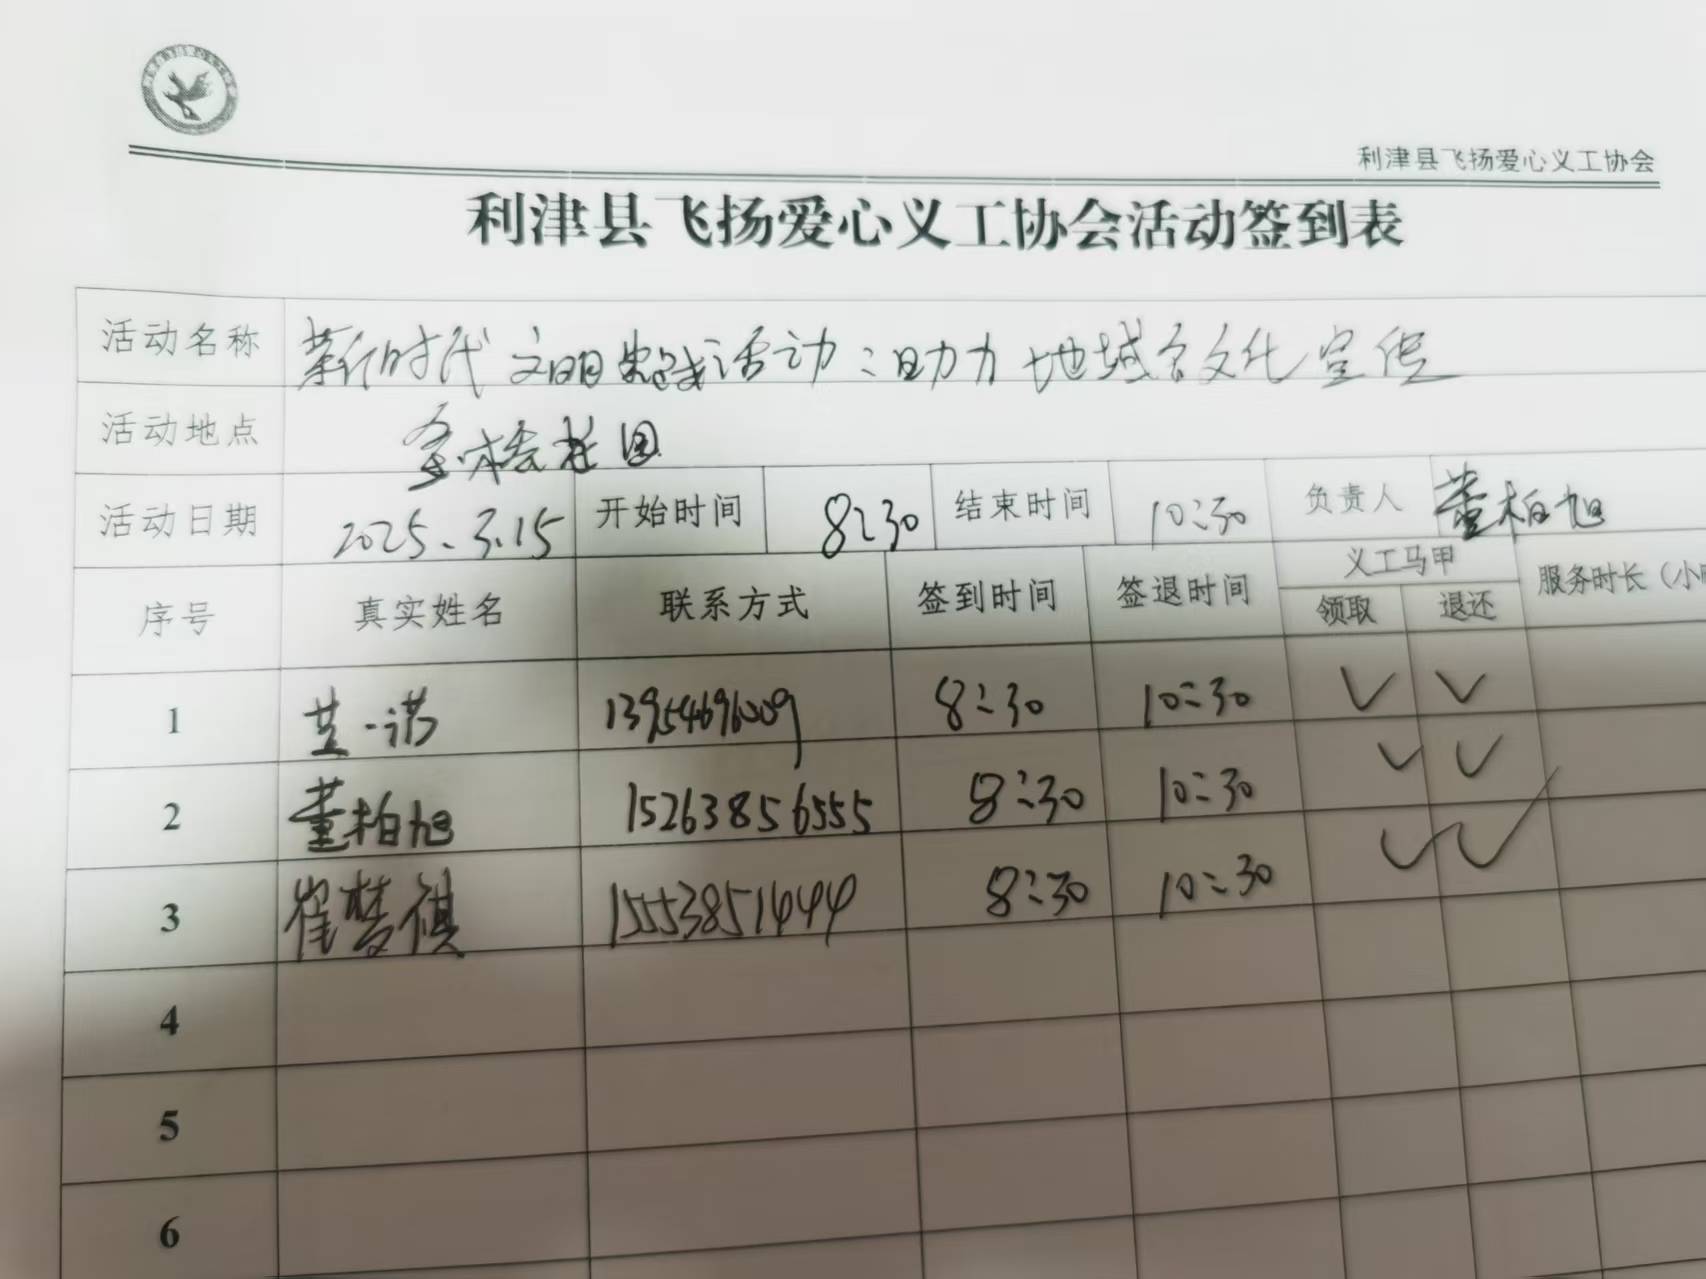 利津县飞扬爱心义工协会
利津县飞扬爱心义工协会活动签到表
活动名称 新时代文明实践活动:助力地域文化宣传
活动地点
活动日期 2025.3.15 开始时间 8:30 结束时间 10:30 负责人 董柏旭
序号 真实姓名 联系方式 签到时间 签退时间 义工马甲 服务时长(小
领取 退还
1 13954696009 8:30 10:30 ✓ ✓
2 董柏旭 15263856555 8:30 10:30 ✓ ✓
3 崔梦祺 15553851444 8:30 10:30 ✓ ✓
4
5
6